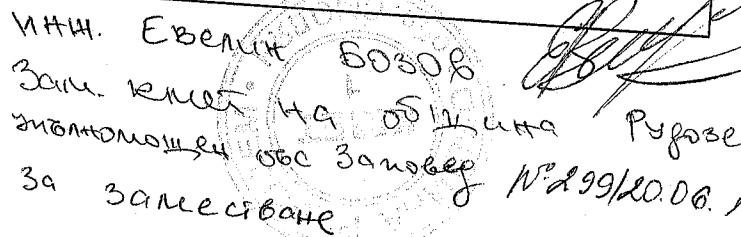 инж. Евелин Бозов
Зам. кмет на община Рудозе
упълномощен със Заповед №299/20.06.
за заместване